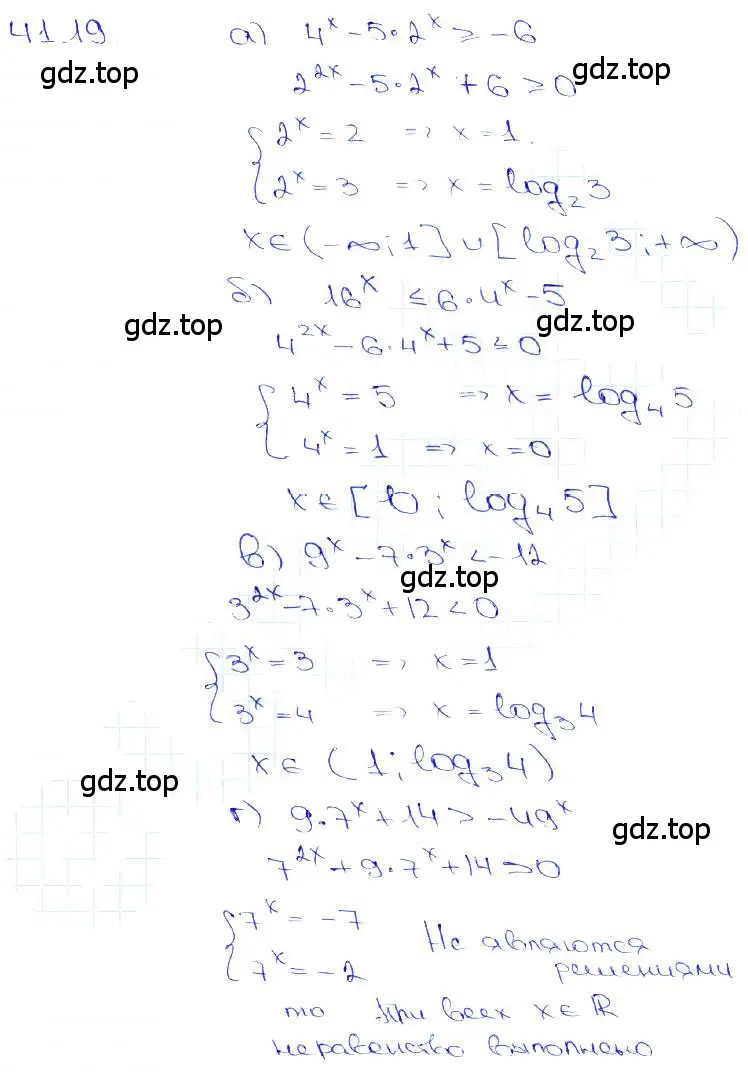 41.19 а) 4^x - 5·2^x ≥ -6
gdz.top
gdz.top
2^{2x} - 5·2^x + 6 ≥ 0
{ 2^x = 2 => x = 1.
{ 2^x = 3 => x = log_2 3
x ∈ (-∞; 1] ∪ [log_2 3; +∞)
б) 16^x ≤ 6·4^x - 5
gdz.top
gdz.top
4^{2x} - 6·4^x + 5 ≤ 0
{ 4^x = 5 => x = log_4 5
{ 4^x = 1 => x = 0
x ∈ [0; log_4 5]
в) 9^x - 7·3^x < -12
gdz.top
3^{2x} - 7·3^x + 12 < 0
{ 3^x = 3 => x = 1
{ 3^x = 4 => x = log_3 4
x ∈ (1; log_3 4)
gdz.top
г) 9·7^x + 14 > -49^x
gdz.top
7^{2x} + 9·7^x + 14 > 0
{ 7^x = -7 Не являются
{ 7^x = -2 решениями
то при всех x ∈ ℝ
неравенство выполнено